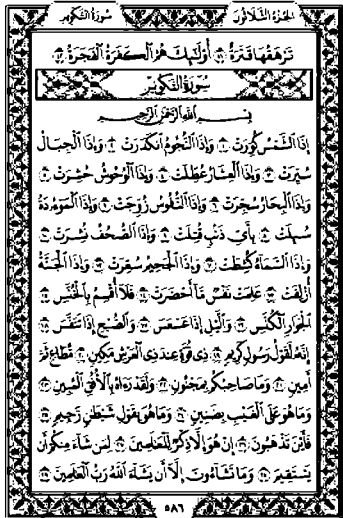 سورة التكوير
الجزء الثلاثون
ترهقها قترة ٤١ أولئك هم الكفرة الفجرة ٤٢
سورة التكوير
بسم الله الرحمن الرحيم
إذا الشمس كورت ١ وإذا النجوم انكدرت ٢ وإذا الجبال
سيرت ٣ وإذا العشار عطلت ٤ وإذا الوحوش حشرت ٥
وإذا البحار سجرت ٦ وإذا النفوس زوجت ٧ وإذا الموءودة
سئلت ٨ بأي ذنب قتلت ٩ وإذا الصحف نشرت ١٠
وإذا السماء كشطت ١١ وإذا الجحيم سعرت ١٢ وإذا الجنة
أزلفت ١٣ علمت نفس ما أحضرت ١٤ فلا أقسم بالخنس ١٥
الجوار الكنس ١٦ واليل إذا عسعس ١٧ والصبح إذا تنفس ١٨
إنه لقول رسول كريم ١٩ ذي قوة عند ذي العرش مكين ٢٠ مطاع ثم
أمين ٢١ وما صاحبكم بمجنون ٢٢ ولقد رءاه بالأفق المبين ٢٣
وما هو على الغيب بضنين ٢٤ وما هو بقول شيطن رجيم ٢٥
فأين تذهبون ٢٦ إن هو إلا ذكر للعلمين ٢٧ لمن شاء منكم أن
يستقيم ٢٨ وما تشاءون إلا أن يشاء الله رب العلمين ٢٩
٥٨٦